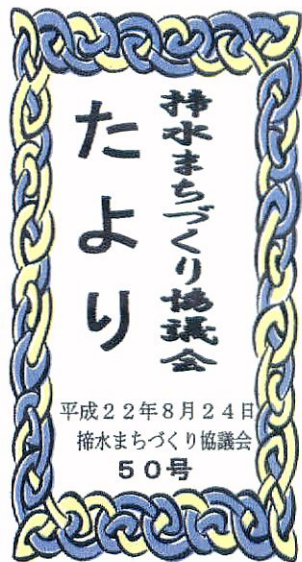 掃水まちづくり協議会
たより
平成22年8月24日
掃水まちづくり協議会
50号